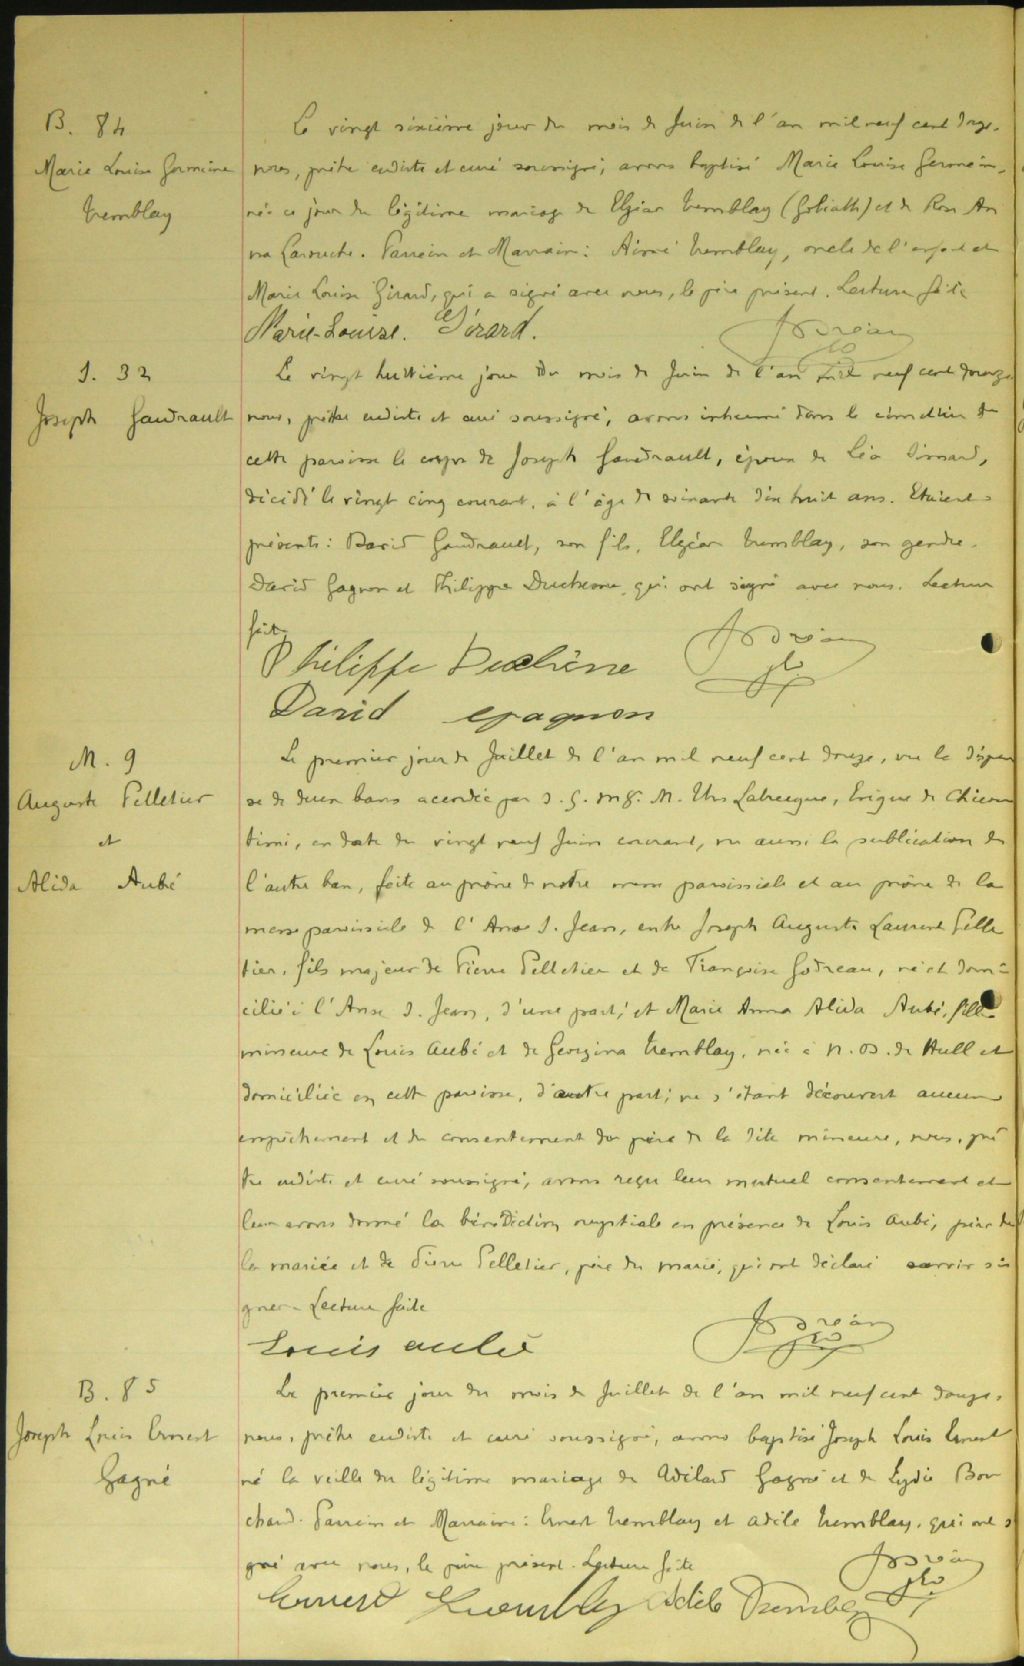 B. 84
Marie Louise Germaine
Tremblay
Le vingt sixième jour du mois de Juin de l'an mil neuf cent douze,
nous, prêtre eudiste et curé soussigné, avons baptisé Marie Louise Germain,
née ce jour du légitime mariage de Elgéar Tremblay (Goliath) et de Rose An
na Larouche. Parrain et Marraine: Aimé Tremblay, oncle de l'enfant et
Marie Louise Girard, qui a signé avec nous, le père présent. Lecture faite
Marie-Louise. Girard.
S. 32
Joseph Gaudrault
Le vingt huitième jour du mois de Juin de l'an mil neuf cent douze
nous, prêtre eudiste et curé soussigné, avons inhumé dans le cimetière de
cette paroisse le corps de Joseph Gaudrault, époux de Léa Simard,
décédé le vingt cinq courant, à l'âge de soixante dix huit ans. Etaient
présents: David Gaudrault, son fils, Elgéar Tremblay, son gendre.
David Gagnon et Philippe Duchesne, qui ont signé avec nous. Lecture
faite
Philippe Duchêne
David gagnon
M. 9
Auguste Pelletier
et
Alida Aubé
Le premier jour de Juillet de l'an mil neuf cent douze, vu la dispen
se de deux bans accordée par S. G. Mgr. M. Ths Labrecque, Evêque de Chicou
timi, en date du vingt neuf Juin courant, vu aussi la publication de
l'autre ban, faite au prône de notre messe paroissiale et au prône de la
messe paroissiale de l'Anse S. Jean, entre Joseph Auguste Laurent Pelle
tier, fils majeur de Pierre Pelletier et de Françoise Godreau, né et domi
cilié à l'Anse S. Jean, d'une part; et Marie Anna Alida Aubé, fille
mineure de Louis Aubé et de Georgina Tremblay, née à N. D. de Hull et
domiciliée en cette paroisse, d'autre part; ne s'étant découvert aucun
empêchement et du consentement du père de la dite mineure, nous, prê
tre eudiste et curé soussigné, avons reçu leur mutuel consentement et
leur avons donné la bénédiction nuptiale en présence de Louis Aubé, père de
la mariée et de Pierre Pelletier, père du marié, qui ont déclaré savoir si
gner. Lecture faite
Louis aubé
B. 85
Joseph Louis Ernest
Gagné
Le premier jour du mois de Juillet de l'an mil neuf cent douze,
nous, prêtre eudiste et curé soussigné, avons baptisé Joseph Louis Ernest
né la veille du légitime mariage de Adélard Gagné et de Lydie Bou
chard. Parrain et Marraine: Ernest Tremblay et Adèle Tremblay, qui ont si
gné avec nous, le père présent. Lecture faite
Ernest Tremblay Adèle Tremblay